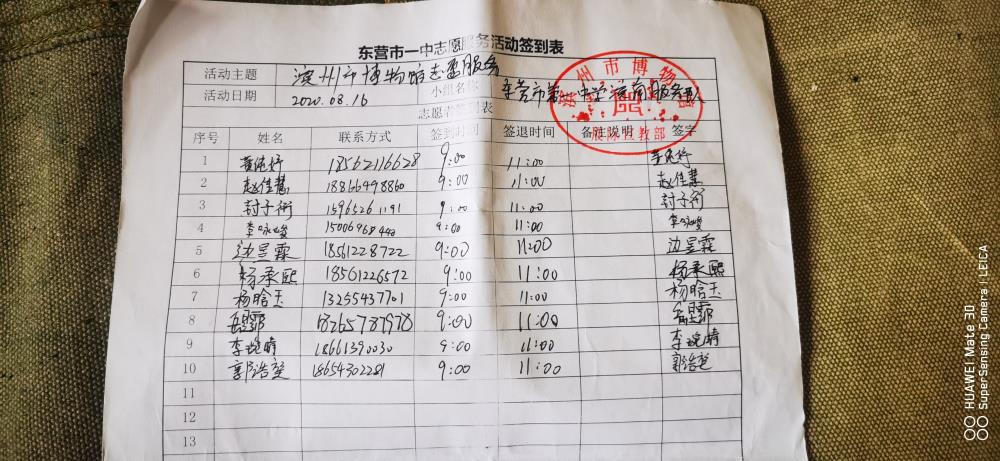 东营市一中志愿服务活动签到表
活动主题 滨州市博物馆志愿服务
活动日期 2020.08.16 小组名称 东营市第一中学 服务队
志愿者签到表
滨州市博物馆
宣教部
序号 姓名 联系方式 签到时间 签退时间 备注说明 签字
1 18562116628 9:00 11:00
2 赵佳慧 18866498860 9:00 11:00 赵佳慧
3 封子衔 15965261191 9:00 11:00 封子衔
4 李咏峻 9:00 11:00 李咏峻
5 边昱霖 18561228722 9:00 11:00 边昱霖
6 杨承熙 18561226572 9:00 11:00 杨承熙
7 杨晗玉 13255437701 9:00 11:00 杨晗玉
8 18265787978 9:00 11:00
9 李琬晴 18661390030 9:00 11:00 李琬晴
10 郭浩楚 18654302281 9:00 11:00 郭浩楚
11
12
13
HUAWEI Mate 30
SuperSensing Camera | LEICA